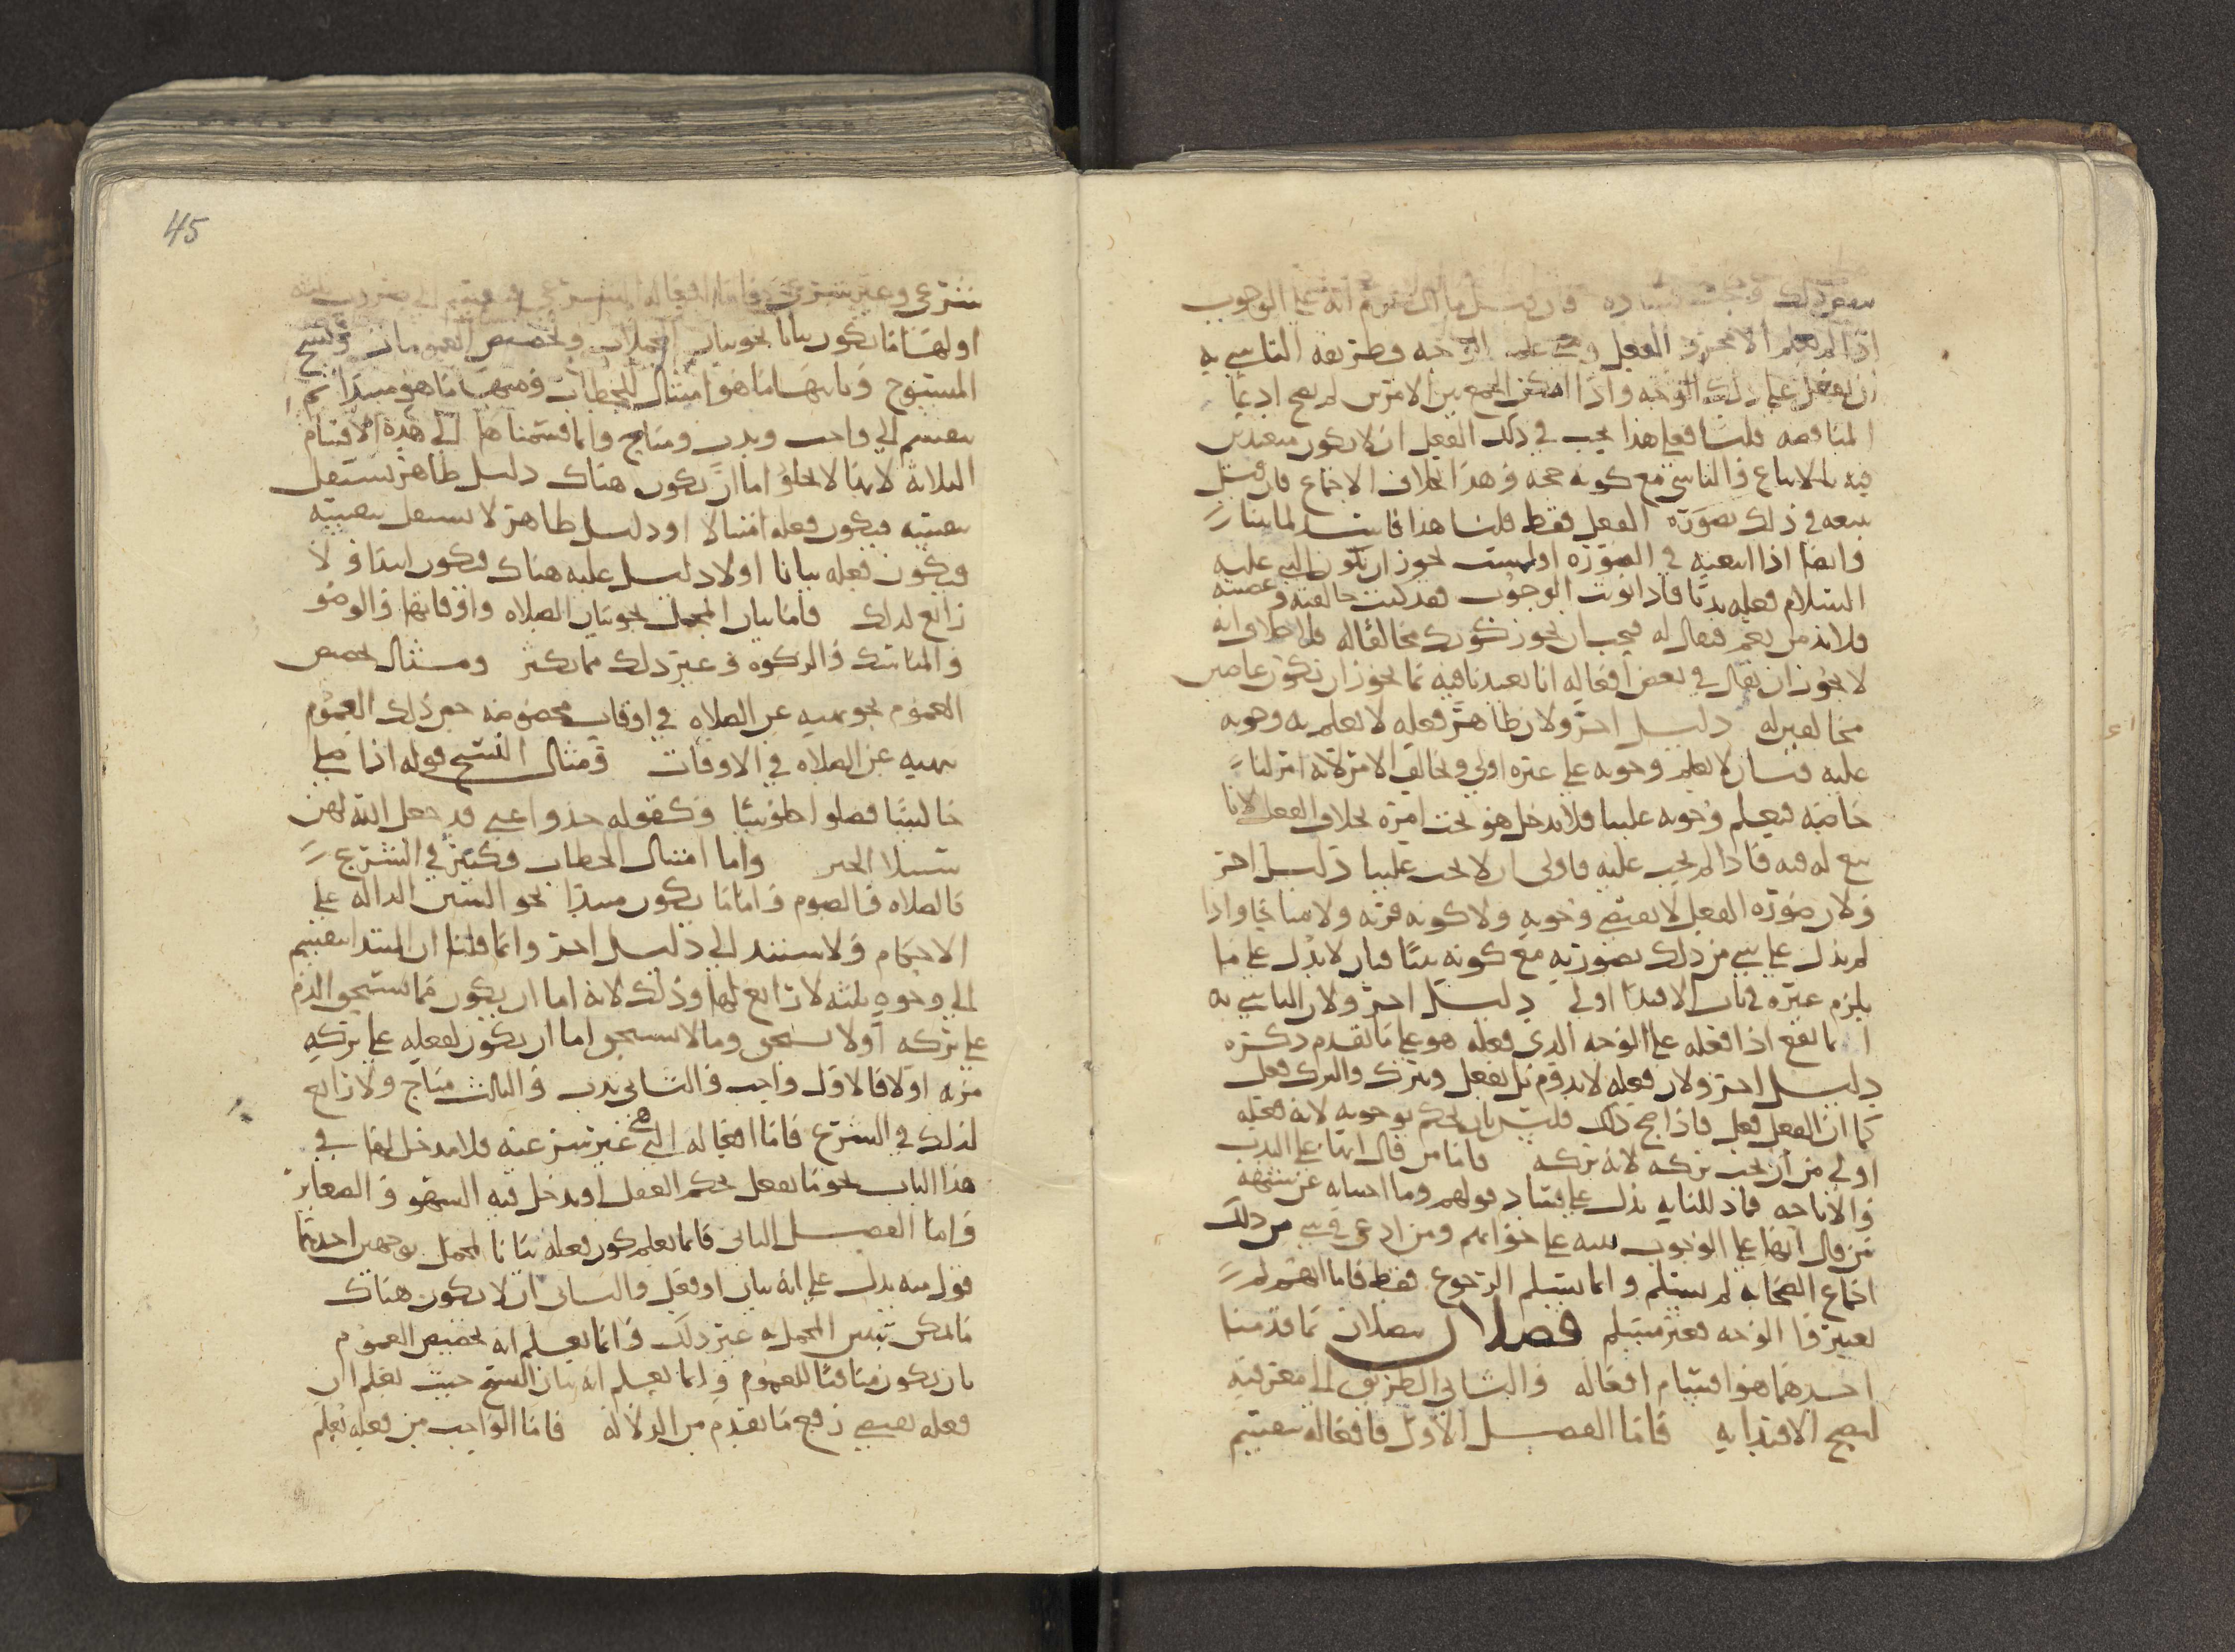 ذلك فان قيل ما انكرتم انه على الوجوب
اذا لم يعلم الا مجرد الفعل وعلى الوجه وطريقه التاسي به
ان يفعل على ذلك الوجه واذا امكن الجمع بين الامرين لم يصح ادعا
المناقضه قلنا فعلى هذا يجب في ذلك الفعل ان لا نكون متعبدين
فيه بالاتباع والتاسي مع كونه حجه وهذا بخلاف الاجماع فان قيل
نتبعه في ذلك بصورة الفعل فقط قلنا هذا فاسد لما بينا
وايضا اذا اتبعته في الصورة اولست تجوز ان يكون النبي عليه
السلام فعله ندبا فاذا نويت الوجوب فقد كنت خالفته وعصيته
فلا بد من نعم فيقال له فيجب ان تجوز كونك مخالفا له فلا خلاف انه
لا يجوز ان يقال في بعض افعاله انا تعبدنا فيه بما يجوز ان نكون عاصين
مخالفين له دليل اخر ولان ظاهر فعله لا يعلم به وجوبه
عليه فبان لا يعلم وجوبه على غيره اولى ويخالف الامر لانه امر لنا
خاصة فيعلم وجوبه علينا فلا يدخل هو تحت امره بخلاف الفعل لانا
تبع له فيه فاذا لم يجب عليه فاولى ان لا يجب علينا دليل اخر
ولان صورة الفعل لا تقتضي وجوبه ولا كونه قربه ولا مباحا واذا
لم يدل على شي من ذلك بصورته مع كونه بينا فبان لا يدل على ما
يلزم غيره في باب الاقتدا اولى دليل اخر ولان التاسي به
انما يقع اذا فعله على الوجه الذي فعله هو على ما تقدم ذكره
دليل اخر ولان فعله لا يدوم بل يفعل ويترك والترك فعل
كما ان الفعل فعل فاذا صح ذلك فليس بان يحكم بوجوبه لانه فعله
اولى من ان يجب تركه لانه تركه فاما من قال انها على الندب
والاباحه فما دللنا به يدل على فساد قولهم وما اجبنا به عن شبهة
من قال انها على الوجوب تنبيه على جوابهم ومن ادعى في شي من ذلك
اجماع الصحابه لم يسلم وانما يسلم الرجوع فقط فاما انهم لم
يعتبروا الوجه فغير مسلم فصل فصلان بما قدمنا
احدهما هو اقسام افعاله والثاني الطريق الى معرفته
ليصح الاقتدا به فاما الفصل الاول فافعاله تنقسم
45
شرعي وغير شرعي واما افعاله الشرعي فينقسم الى ضروب ثلثه
اولها ما يكون بيانا نحو بيان المجملات وتخصيص العمومات ونسخ
المنسوخ وثانيها ما هو امتثال للخطاب ومنها ما هو مبتدا ثم
ينقسم الى واجب وندب ومباح وانما قسمناها الى هذه الاقسام
الثلاثه لانها لا تخلو اما ان يكون هناك دليل ظاهر يستقل
بنفسه فيكون فعله امتثالا او دليل ظاهر لا يستقل بنفسه
فيكون فعله بيانا اولا دليل عليه هناك فيكون ابتدا ولا
رابع لذلك فاما بيان المجمل نحو بيان الصلاه واوقاتها والوضو
والمناسك والزكوه وغير ذلك مما يكثر ومثال تخصيص
العموم نحو نهيه عن الصلاه في اوقات مخصوصه خص ذلك العموم
نهيه عن الصلاه في الاوقات ومثال النسخ قوله اذا صلى
جالسا فصلوا جلوسا وكقوله خذوا عني قد جعل الله لهن
سبيلا الخبر واما امتثال الخطاب فكثير في الشرع
كالصلاه والصوم واما ما يكون مبتدا نحو السنن الداله على
الاحكام ولا يستند الى دليل اخر وانما قلنا ان المبتدا ينقسم
الى وجوه ثلثه لا رابع لها وذلك لانه اما ان يكون مما يستحق الذم
على تركه او لا يستحق وما لا يستحق اما ان يكون لفعله على تركه
مزيه او لا فالاول واجب والثاني ندب والثالث مباح ولا رابع
لذلك في الشرع فاما افعاله التي هي غير شرعيه فلا مدخل لها في
هذا الباب نحو ما يفعل بحكم العقل او يدخل فيه السهو والصغاير
واما الفصل الثاني فانما يعلم كون فعله بيانا لمجمل بوجهين احدهما
قول منه يدل على انه بيان او فعل والثاني ان لا يكون هناك
ما يمكن تبيين المجمل به غير ذلك وانما يعلم انه تخصيص العموم
بان يكون منافيا للعموم وانما يعلم انه بيان النسخ حيث نعلم ان
فعله يقتضي رفع ما تقدم من الدلاله فاما الواجب من فعله يعلم